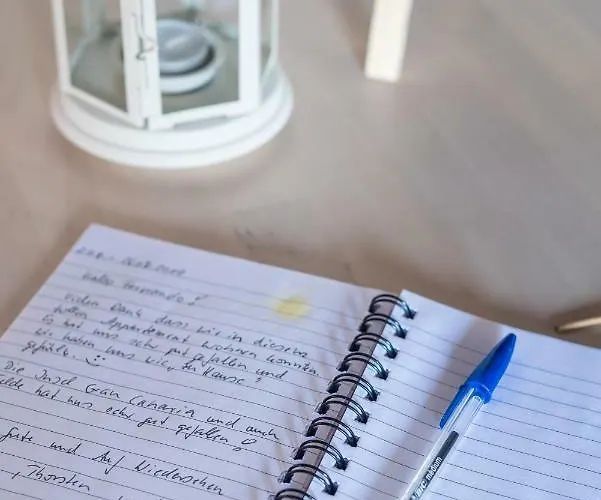 Hallo Fernando!
Vielen Dank dass wir in diesem
tollen Appartement wohnen konnten.
Es hat uns sehr gut gefallen und
wir haben uns wie "zu Hause"
gefühlt. :)
Die Insel Gran Canaria und auch
hat uns sehr gut gefallen
Gute und Auf Wiedersehen
Thorsten
BIC medium